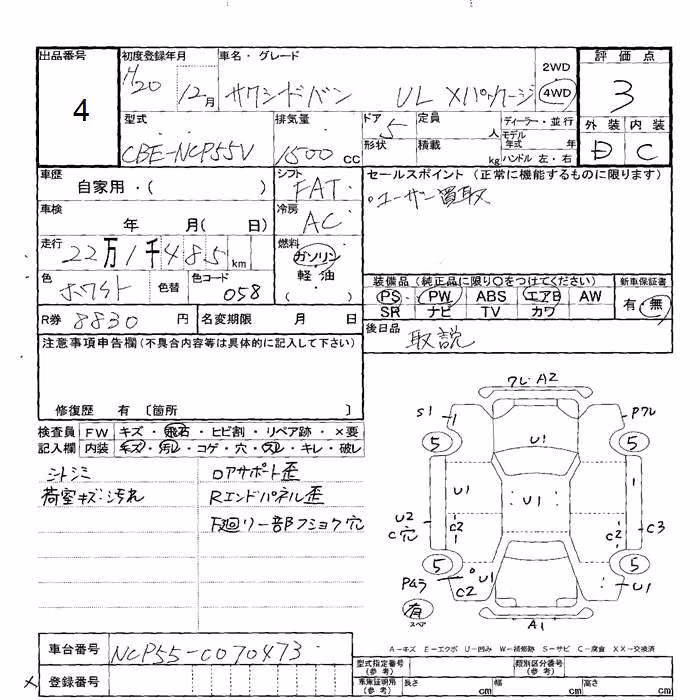 出品番号 初度登録年月 車名・グレード 評価点
4 H20 12月 サクシードバン UL Xパッケージ 2WD 4WD 3
型式 排気量 ドア 定員 ディーラー・並行 外装 内装
CBE-NCP55V 1500cc 5 人 モデル年式 年 D C
形状 積載 kg ハンドル 左・右
車歴 自家用・( ) シフト FAT セールスポイント (正常に機能するものに限ります)
車検 年 月( 日) 冷房 AC ・ユーザー買取
走行 22万1千485km 燃料 ガソリン
軽油 ( )
色 ホワイト 色替 色コード 058
装備品 (純正品に限り○をつけてください) 新車保証書
PS PW ABS エアB AW 有・無
SR ナビ TV カワ
R券 8830円 名変期限 月 日 後日品 取説
注意事項申告欄(不具合内容等は具体的に記入して下さい)
修復歴 有 〔箇所 〕
検査員 FW キズ・飛石・ヒビ割・リペア跡・×要
記入欄 内装 キズ・汚レ・コゲ・穴・スレ・キレ・破レ
シートシミ ロアサポート歪
荷室キズ・汚れ Rエンドパネル歪
下廻り一部フショク穴
ワレ A2
S1 Pワレ
5 U1 5
U1 U1 1
U2 C穴 C2 C2 C3
5 5
Pムラ C2 U1 U1
有 スペア A1
A-キズ E-エクボ U-凹み W-補修跡 S-サビ C-腐食 XX-交換済
車台番号 NCP55-0070473
登録番号
型式指定番号(参考) 類別区分番号(参考)
車庫証明用(参考) 長さ cm 幅 cm 高さ cm